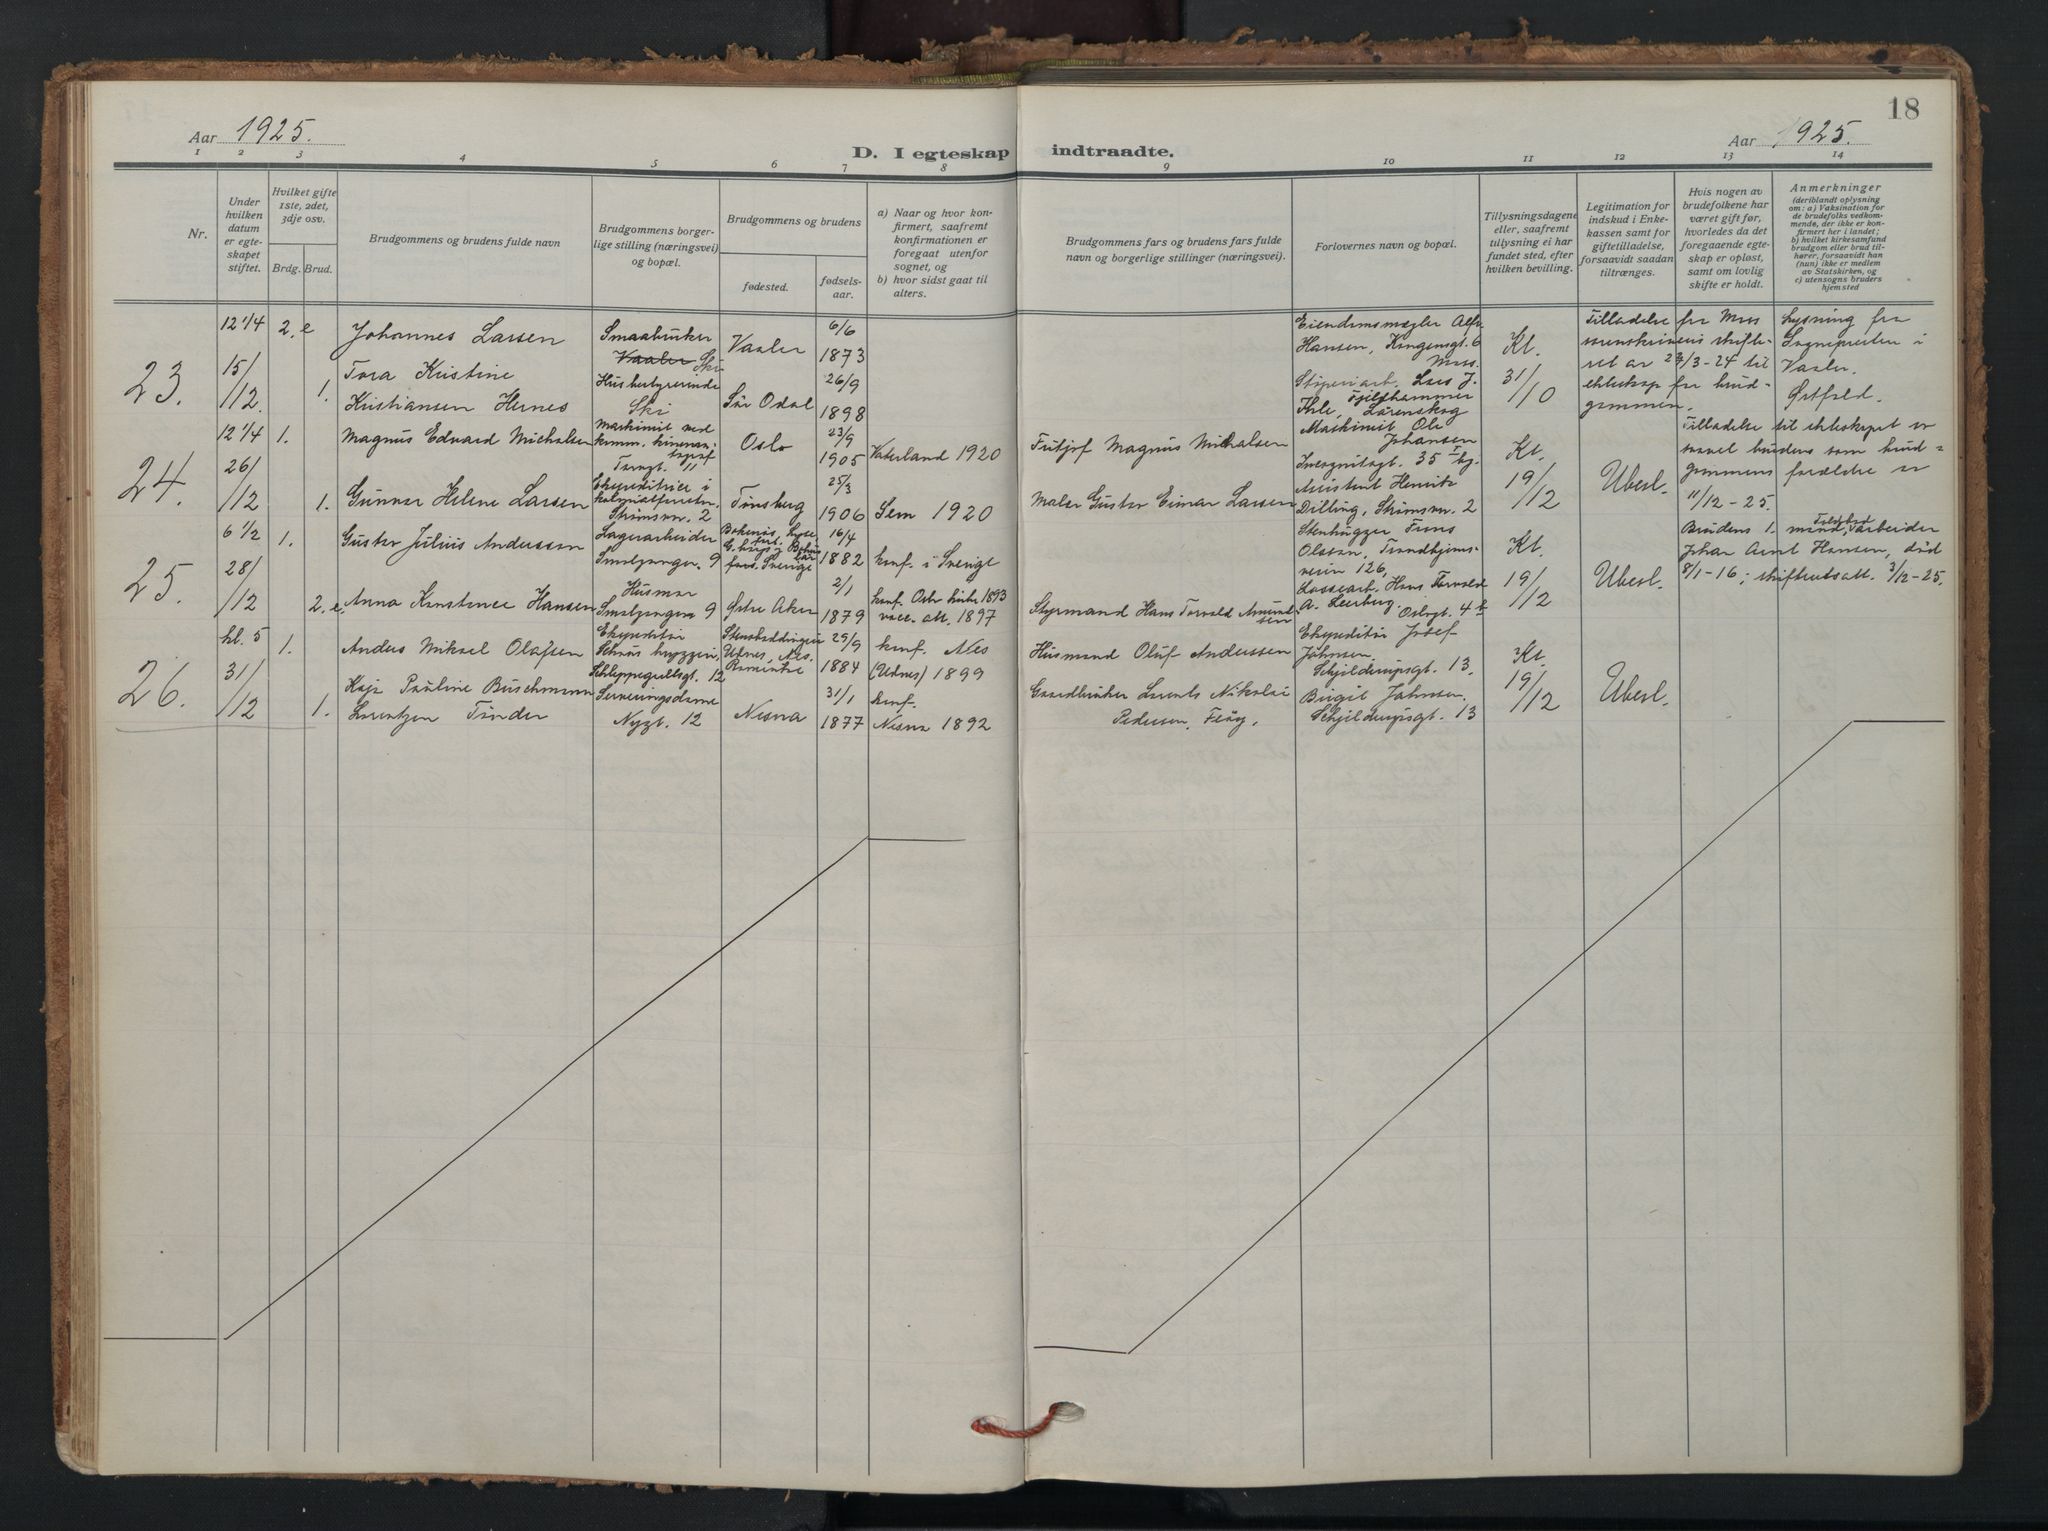 18
Aar 1925.
Aar 1925.
D. I egteskap indtraadte.
1 2 3 4 5 6 7 8 9 10 11 12 13 14
Nr.
Under hvilken datum er egteskapet stiftet.
Hvilket gifte 1ste, 2det, 3dje osv.
Brdg. Brud.
Brudgommens og brudens fulde navn
Brudgommens borgerlige stilling (næringsvei) og bopæl.
Brudgommens og brudens
fødested.
fødselsaar.
a) Naar og hvor konfirmert, saafremt konfirmationen er foregaat utenfor sognet, og
b) hvor sidst gaat til alters.
Brudgommens fars og brudens fars fulde navn og borgerlige stillinger (næringsvei).
Forlovernes navn og bopæl.
Tillysningsdagene eller, saafremt tillysning ei har fundet sted, efter hvilken bevilling.
Legitimation for indskud i Enkekassen samt for giftetilladelse, forsaavidt saadan tiltrænges.
Hvis nogen av brudefolkene har været gift før, hvorledes da det foregaaende egteskap er opløst, samt om lovlig skifte er holdt.
Anmerkninger
(deriblandt oplysning om: a) Vaksination for de brudefolks vedkommende, der ikke er konfirmert her i landet; b) hvilket kirkesamfund brudgom eller brud tilhører, forsaavidt han (hun) ikke er medlem av Statskirken, og c) utensogns bruders hjemsted
23.
12 1/4
15/12
2. e
1.
Johannes Larsen
Tora Kristine
Kristiansen Hernes
Smaabruker
Vaaler Ski
Husbestyrerinde
Ski
Vaaler
Sør Odal
6/6
1873
26/9
1898
Eiendomsmægler Alfr.
Hansen, Kongensgt. 6
Moss.
Støperiarb. Lars J.
Ihle, Fjeldhammer
Lørenskog
Kt.
31/10
Tilladelse fra Moss
sorenskriveris skifteret av 22/3-24 til
ekteskap for brudgommen.
Lysning fra
Sognepresten i
Vaaler.
Østfold.
24.
12 1/4
26/12
1.
1.
Magnus Edvard Michalsen
Gunvor Helene Larsen
Maskinist ved
komm. kinematograf
Torvgt. 11
Ekspeditrice i
kolonialforretn.
Strømsvn. 2
Oslo
Tønsberg
23/9
1905
25/3
1906
Vaterland 1920
Sem 1920
Fritjof Magnus Michalsen
Maler Gustav Einar Larsen
Maskinist Ole
Johansen
Incognitogt. 35
Assistent Henrik
Dilling, Strømsvn. 2
Kt.
19/12
Uberl.
Tilladelse til ekteskapet av
saavel brudens som brudgommens forældre av
11/12-25.
25.
6 1/2
28/12
1.
2. e
Gustav Julius Anderssen
Anna Konstance Hansen
Lagerarbeider
Smalgangen 9
Husmor
Smalgangen 9
Sverige
Østre Aker
16/4
1882
2/1
1879
konf. i Sverige
konf. Oslo kirke 1893
vacc. att. 1897
Styrmand Hans Torvald Amundsen
Stenhugger Frans
Olsson, Trondhjemsveien 126,
Lossearb. Hans Torvald
A. Leerberg, Oslogt. 4 b
Kt.
19/12
Uberl.
Brudens 1. mand, arbeider
Johan Arnt Hansen, død
8/1-16; skifteutsatt. 3/12-25.
26.
kl. 5
31/12
1.
1.
Anders Miksel Olafsen
Kaja Pauline Buschmann
Lorentzen Tønder
Ekspeditør
Schous bryggeri,
Schleppegrellsgt. 12
Serveringsdame
Nygt. 12
Udnes, Nes,
Romerike
Nesna
29/9
1884
31/1
1877
konf. Nes
(Udnes) 1899
konf.
Nesna 1892
Husmand Oluf Anderssen
Gaardbruker Lorents Nikolai
Pedersen,
Ekspeditør Josef
Johnsen,
Schjelderupsgt. 13.
Birgit Johnsen,
Schjelderupsgt. 13
Kt.
19/12
Uberl.